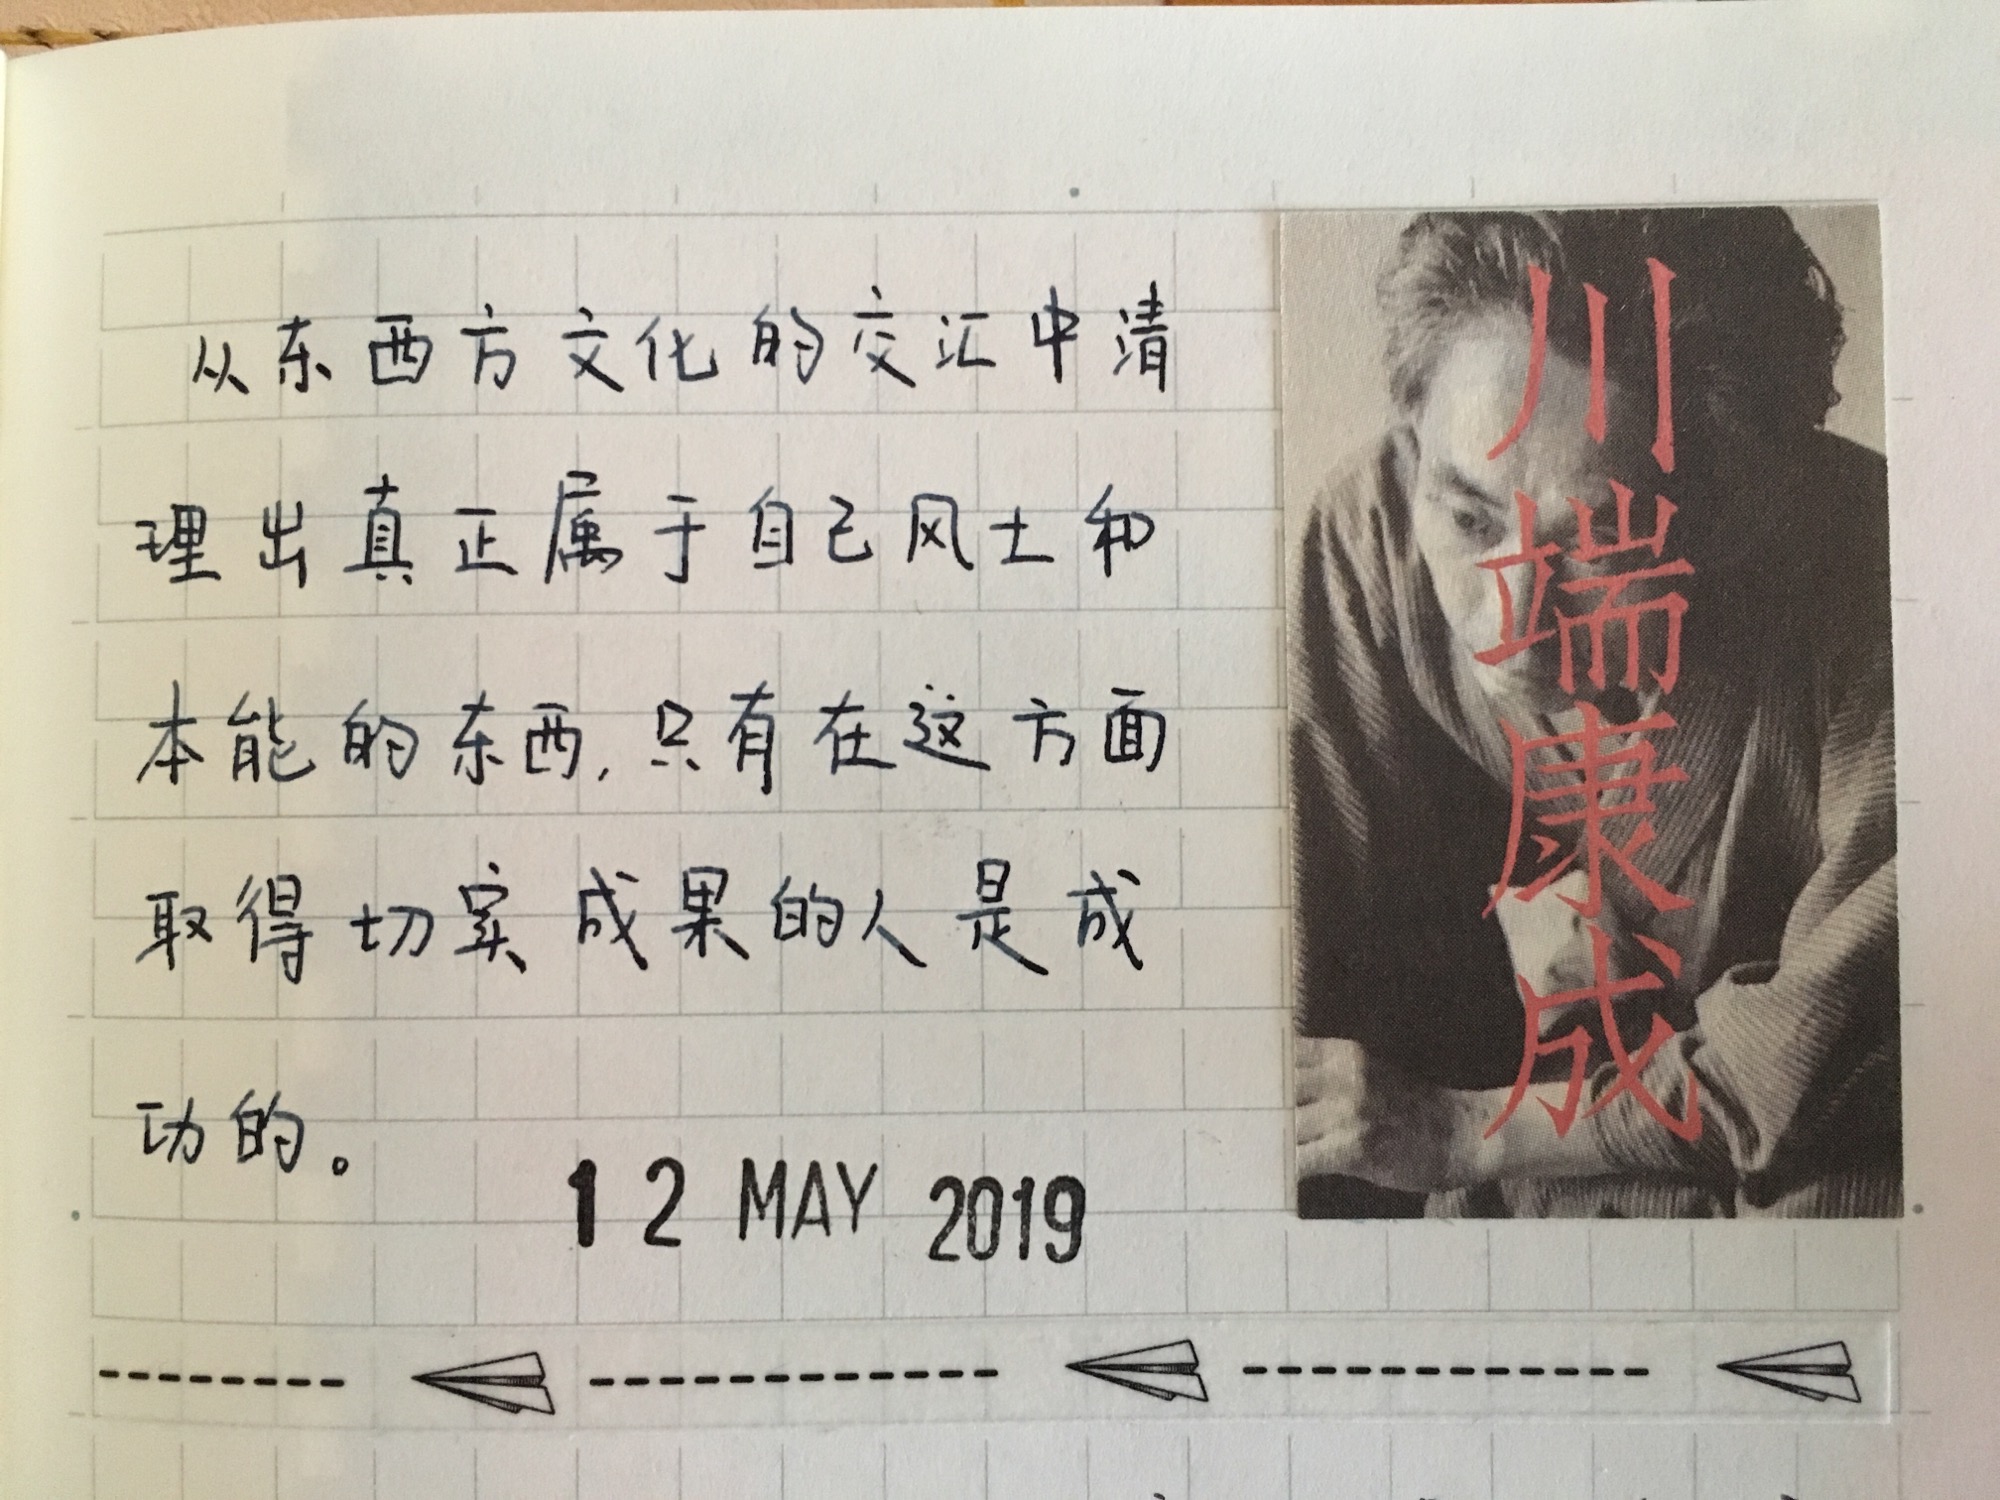 从东西方文化的交汇中清
理出真正属于自己风土和
本能的东西，只有在这方面
取得切实成果的人是成
功的。
12 MAY 2019
川端康成